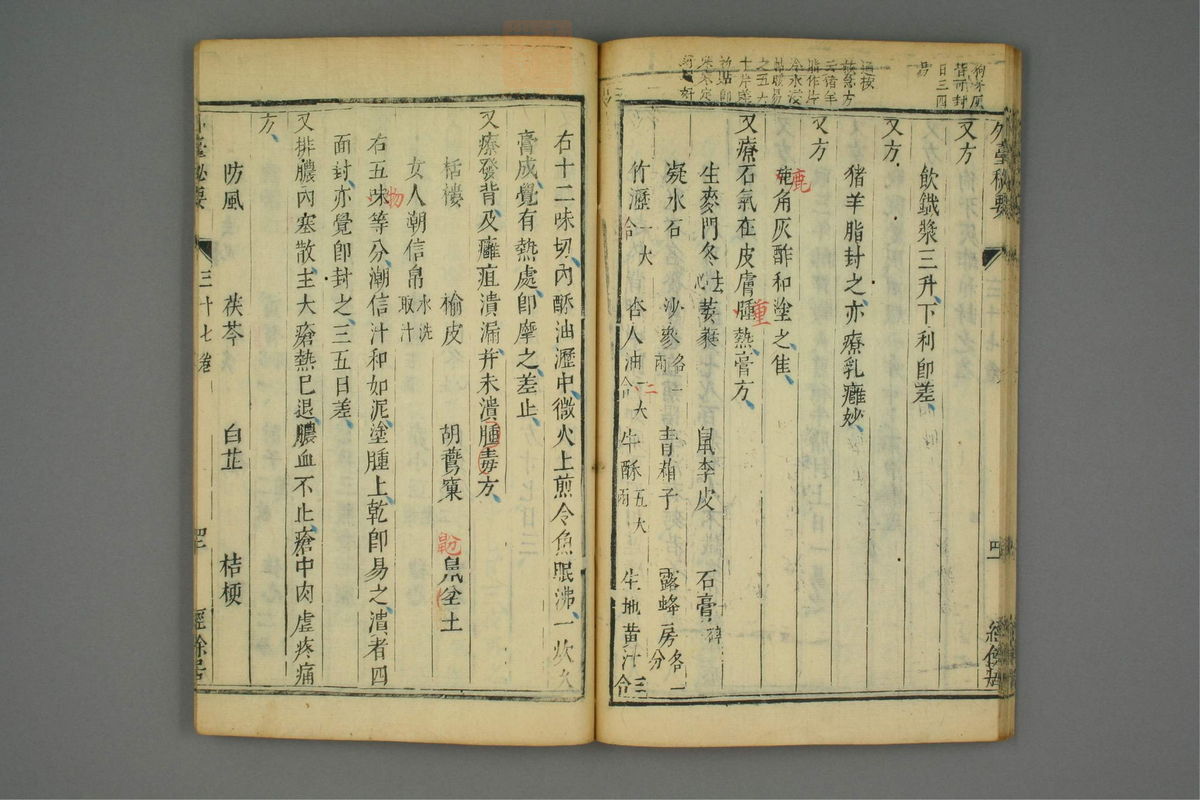 狗牙灰
醋和封
日三四
易
通按
救急方
云猪羊
脂作片
冷水浸
貼暖易
之五六
十片差
初貼即
寒寒定
好
外臺秘要
四
經餘居
又方
飲鐵漿三升下利即差
又方
猪羊脂封之亦療乳癰妙
又方
鹿
角灰酢和塗之隹
又療石氣在皮膚腫熱膏方
重
生麥門冬去心 萎蕤 鼠李皮 石膏碎
凝水石 沙參各一兩 青葙子 露蜂房各一分
竹瀝一大合 杏人油一大合 牛酥五大兩 生地黄汁三合
仁
右十二味切內酥油瀝中微火上煎令魚眠沸一炊久
膏成覺有熱處即摩之差止
又療發背及癰疽潰漏并未潰腫毒方
栝樓 榆皮 胡鷰窠 鼠坌土
女人朝信帛水洗取汁
右五味等分潮信汁和如泥塗腫上乾即易之漬者四
物
面封亦覺即封之三五日差
又排膿內塞散主大瘡熱巳退膿血不止瘡中肉虛疼痛
方
防風 茯苓 白芷 桔梗
外臺秘要
三十七卷
四
經餘居